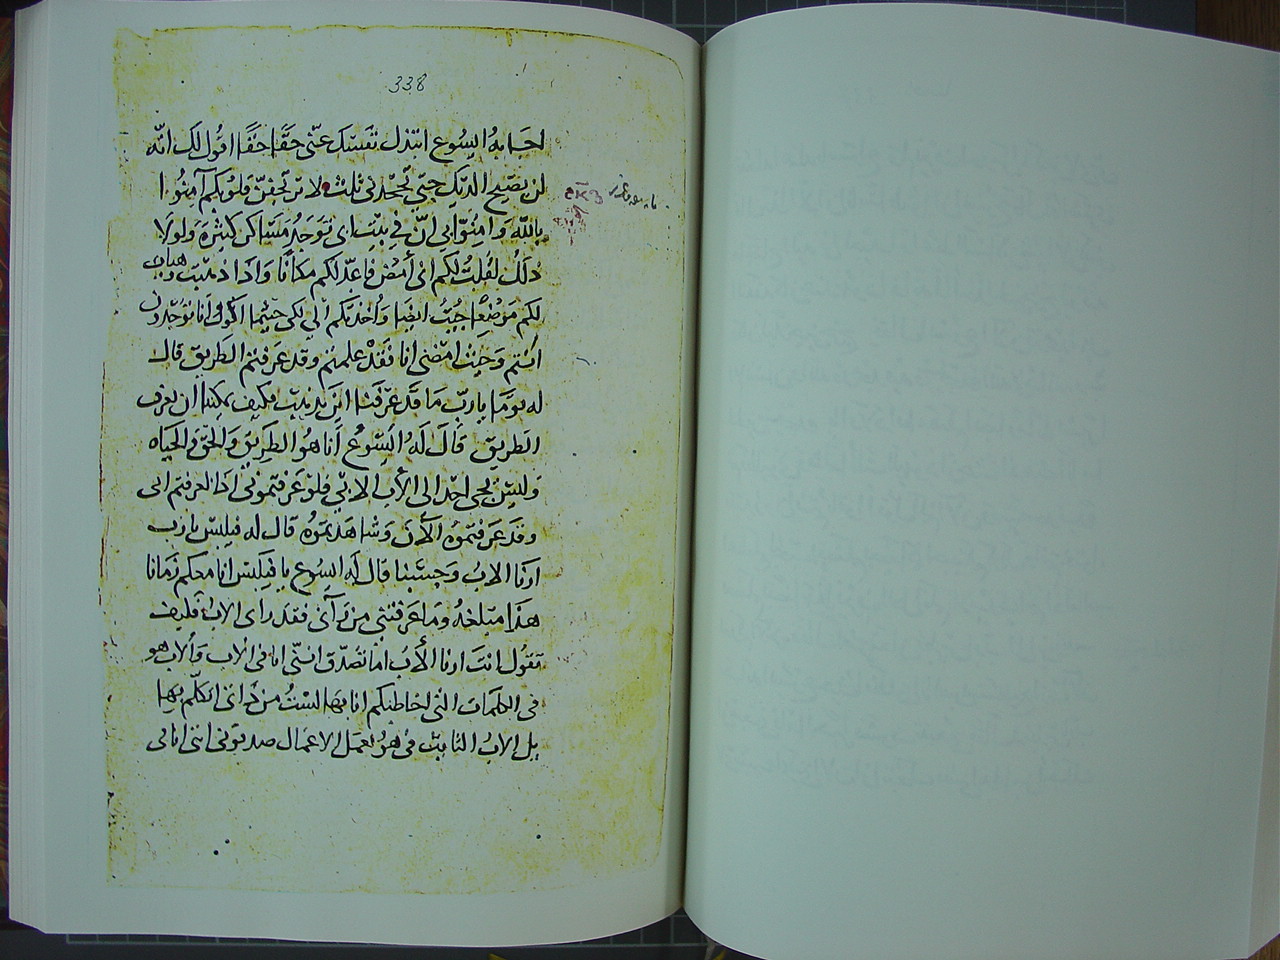 338
اجابه ايسوع اتبذل نفسك عنّي حقًا حقًا اقول لك انّه
لن يصيح الديك حتّى تجحدني ثلث لا ترتجفنّ قلوبكم آمنوا
بالله وامنوا بي انّ في بيت ابي توجد مساكن كثيرة ولولا
ذلك لقلت لكم انّي أمض فاعدّ لكم مكانًا واذا ذهبت وهيات
لكم موضعًا جيتُ ايضا وأخذتكم الي لكي حيثما اكون انا توجدون
انتم وحيث امضي انا فقد علمتم وقد عرفتم الطريق قال
له توما يا ربّ ما قد عرفنا اين تذهب فكيف يمكننا أن نعرف
الطريق قال له ايسوع أنا هو الطريق والحق والحياه
وليس يجي احد الى الأب الا بي فلو عرفتموني اذا لعرفتم ابي
وقد عرفتموه الآن وشاهدتموه قال له فيلبس يا رب
ارنا الاب وحسبنا قال له ايسوع يا فيلبس انا معكم زمانا
هذا مبلغه وما عرفتني من رآني فقد رأى الاب فكيف
تقول انت ارنا الأب اما تصدّق انّني انا في الاب والاب هو
في الكلمات التي اخاطبكم انا بها لستُ من ذاتي اتكلّم بها
بل الاب الثابت فيّ هو يعمل الاعمال صدّقوني انني انا في